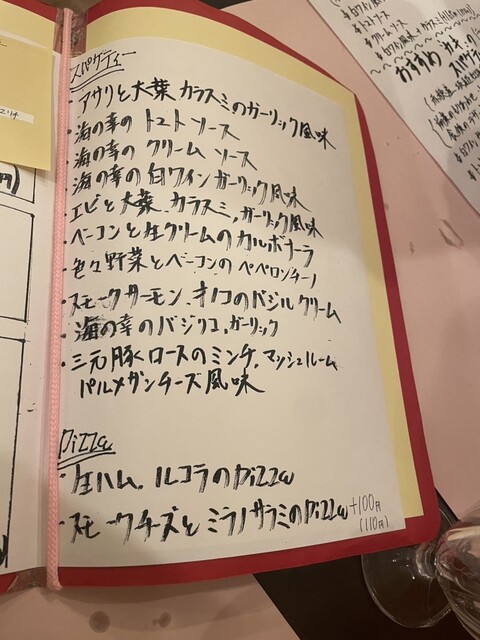 スパゲティー
・アサリと大葉 カラスミのガーリック風味
・海の幸の トマト ソース
・海の幸の クリーム ソース
・海の幸の 白ワイン ガーリック風味
・エビと大葉、カラスミ、ガーリック風味
・ベーコンと生クリームのカルボナーラ
・色々野菜とベーコンの ペペロンチーノ
・スモークサーモン、キノコのバジルクリーム
・海の幸のバジリコ、ガーリック
・三元豚ロースのミンチ、マッシュルーム
パルメザンチーズ風味
Pizza
・生ハム、ルコラのPizza
・スモークチーズと ミラノサラミのPizza +100円
(110円)
おすすめ
スパゲティ